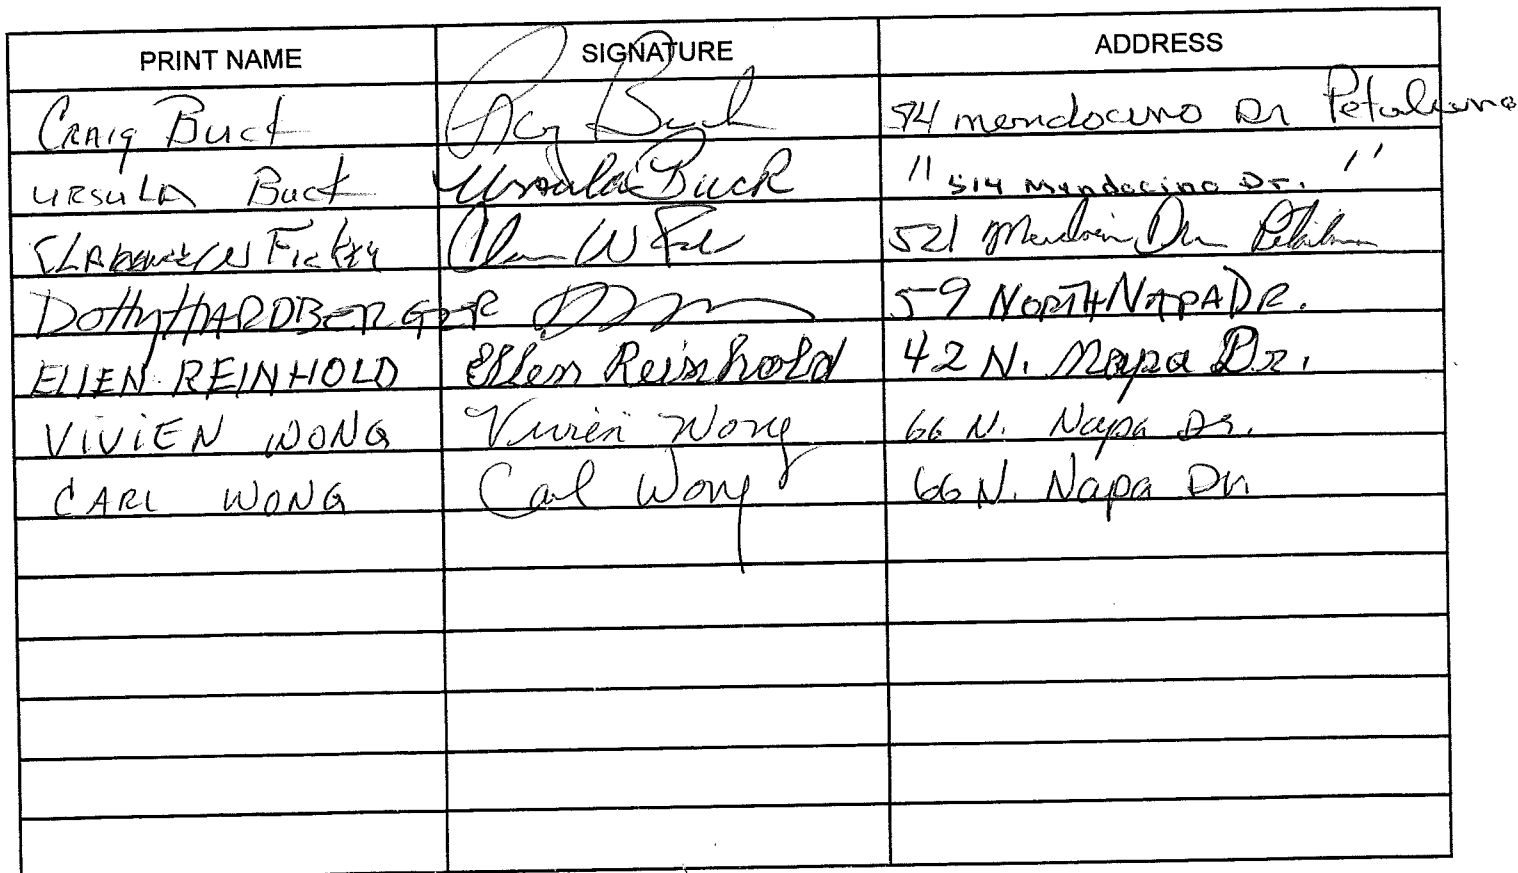 PRINT NAME SIGNATURE ADDRESS
CRAIG Buck Buck 514 mendocino Dr Petaluma
URSULA Buck Ursula Buck " 514 Mendocino Dr. "
W 521 Petaluma
Dotty HARDBERGER 59 NORTH NAPA DR.
ELLEN REINHOLD Ellen Reinhold 42 N. Napa Dr.
VIVIEN WONG Vivien Wong 66 N. Napa Dr.
CARL WONG Carl Wong 66 N. Napa Dr